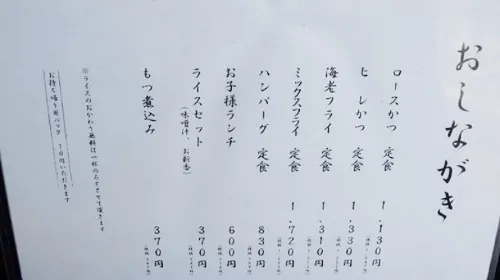 おしながき
ロースかつ 定食 1,130円
ヒレかつ 定食 1,330円
海老フライ 定食 1,310円
ミックスフライ 定食 1,720円
ハンバーグ 定食 830円
お子様ランチ 600円
ライスセット 370円
(味噌汁、お新香)
もつ煮込み 370円
※ライスのおかわり無料は一杯のみとさせて頂きます
お持ち帰り用パック 10円いただきます